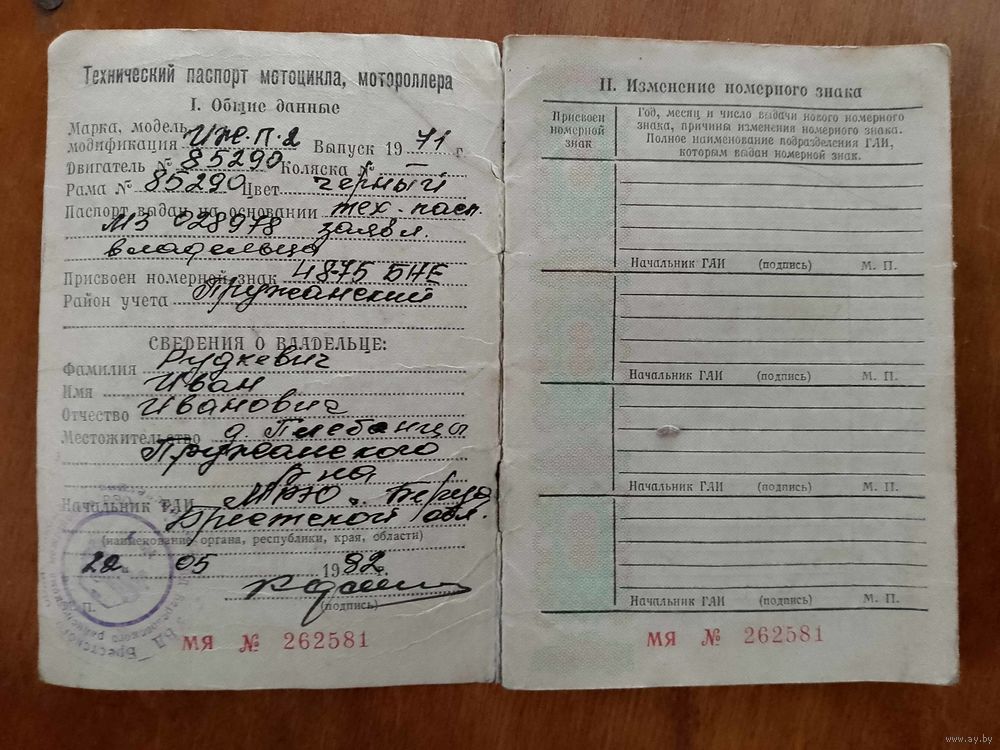 Технический паспорт мотоцикла, мотороллера
I. Общие данные
Марка, модель
модификация ИЖ.П.2 Выпуск 19 71 г
Двигатель № 85290 Коляска № —
Рама № 85290 Цвет черный
Паспорт выдан на основании тех. пасп.
МЗ 028978 заявл.
владельца
Присвоен номерной знак 4875 БНЕ
Район учета Пружанский
СВЕДЕНИЯ О ВЛАДЕЛЬЦЕ:
Фамилия Рудкевич
Имя Иван
Отчество Иванович
Местожительство д.
Пружанского
р-на
Начальник ГАИ МРЭО г. Береза
Брестской обл.
(наименование органа, республики, края, области)
22 05 1982 г.
(подпись)
М. П.
МЯ № 262581
II. Изменение номерного знака
Присвоен номерной знак
Год, месяц и число выдачи нового номерного
знака, причины изменения номерного знака.
Полное наименование подразделения ГАИ,
которым выдан номерной знак.
Начальник ГАИ (подпись) М. П.
Начальник ГАИ (подпись) М. П.
Начальник ГАИ (подпись) М. П.
Начальник ГАИ (подпись) М. П.
МЯ № 262581
www.ay.by